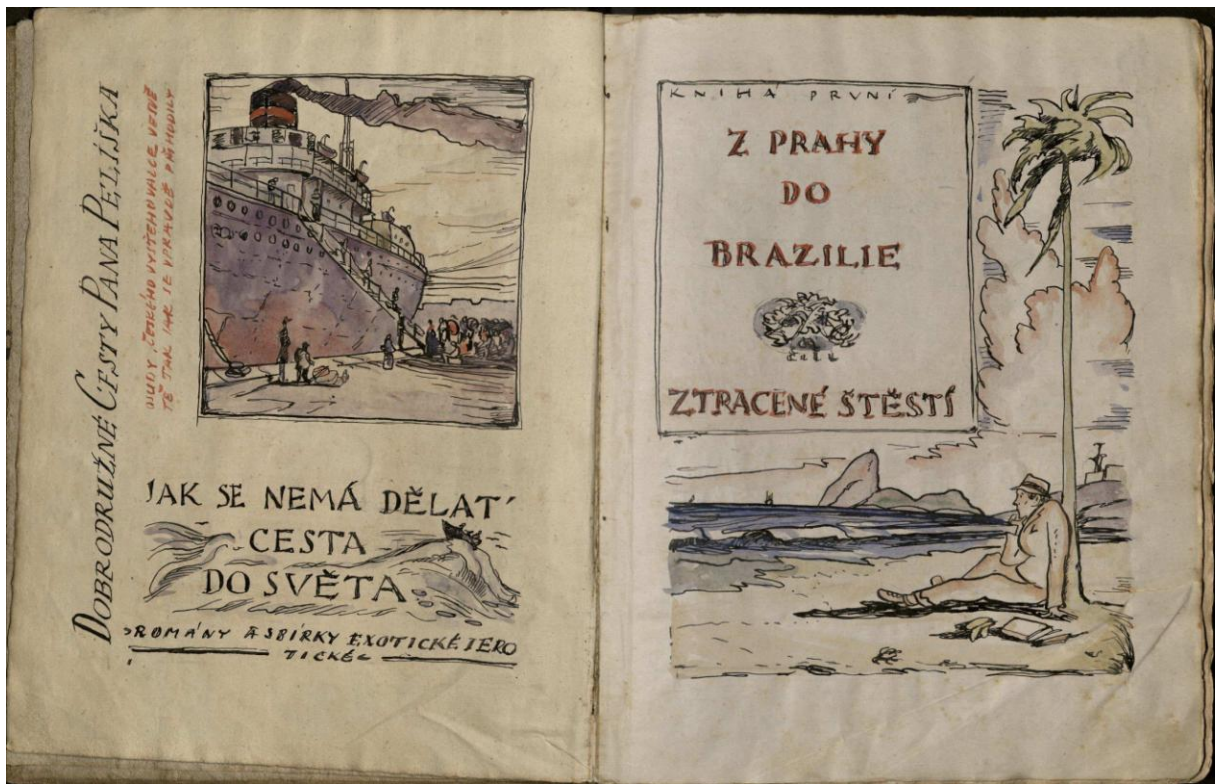 DOBRODRUŽNÉ CESTY PANA PELÍŠKA
TĚ TAK JAK SE VPRAVDĚ PŘIHODILY
JAK SE NEMÁ DĚLAT
CESTA
DO SVĚTA
ROMÁNY A SBÍRKY EXOTICKÉ I ERO
TICKÉ
KNIHA PRVNÍ
Z PRAHY
DO
BRAZILIE
ZTRACENÉ ŠTĚSTÍ